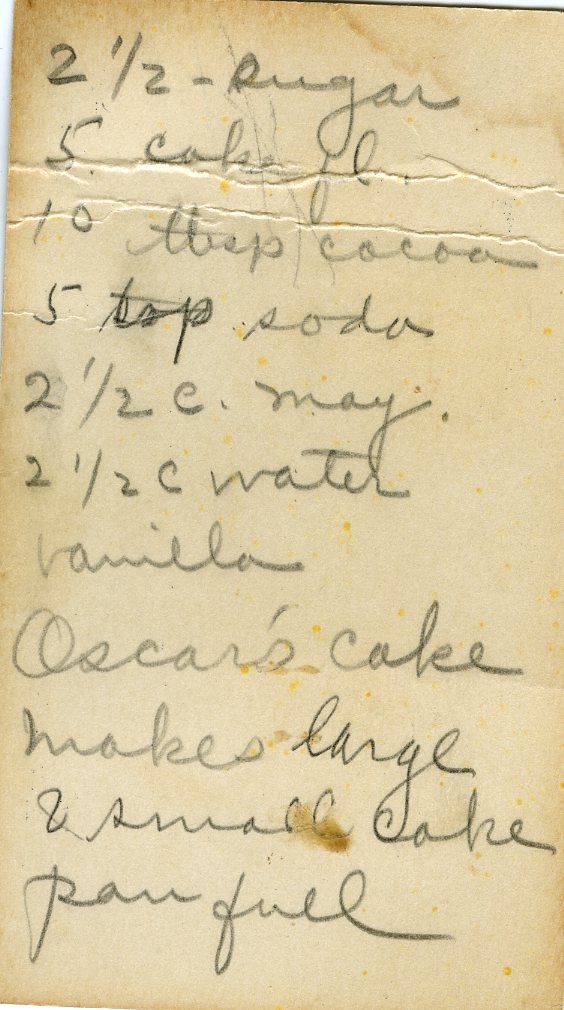 2 1/2 - sugar
5. cake fl.
10 tbsp cocoa
5 tsp soda
2 1/2 c. may.
2 1/2 c water
vanilla
Oscar's cake
makes large
& small cake
pan full